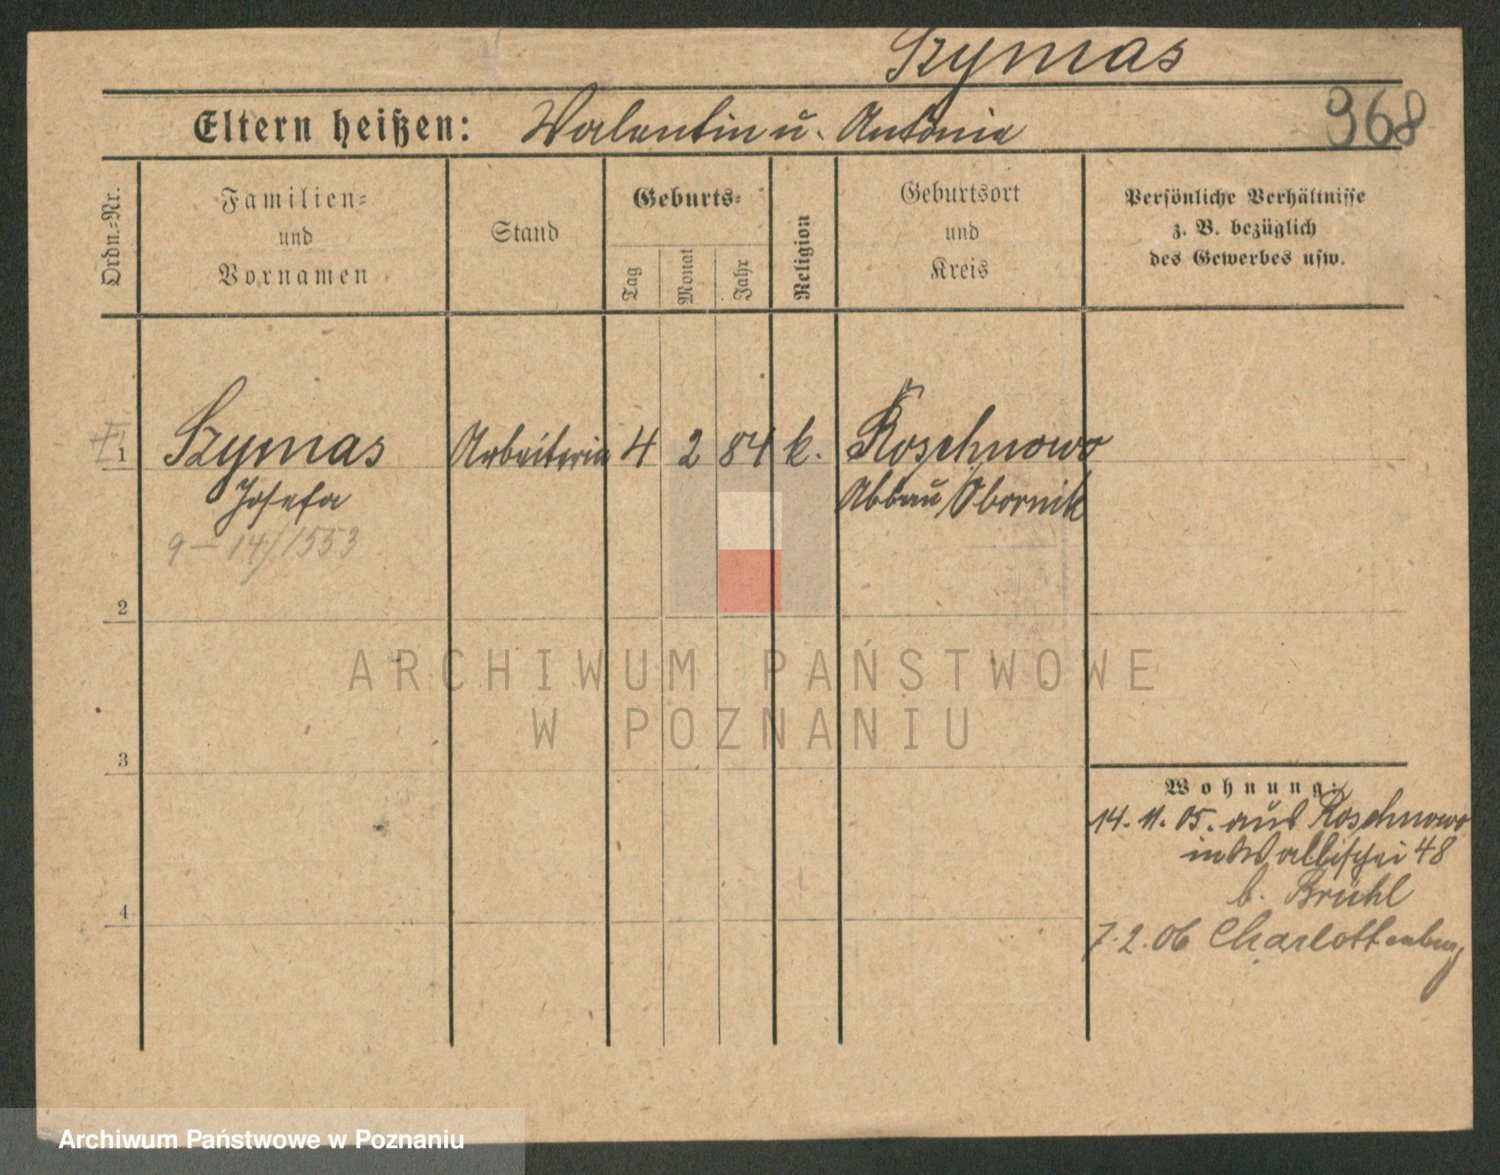 Szymas
Eltern heißen: Valentin u. Antonie
368
Ordn.-Nr.
Familien-
und
Vornamen
Stand
Geburts-
Tag
Monat
Jahr
Religion
Geburtsort
und
Kreis
Persönliche Verhältnisse
z. B. bezüglich
des Gewerbes usw.
1 Szymas Arbeiterin 4 2 84 k. Roschnowo
Josefa Abbau Obornik
9 - 14/1553
2
ARCHIWUM PAŃSTWOWE
W POZNANIU
3
Wohnung:
14. 11. 05. aus Roschnowo
in Wallischei 48
b. Brühl
4
7. 2. 06 Charlottenburg
Archiwum Państwowe w Poznaniu